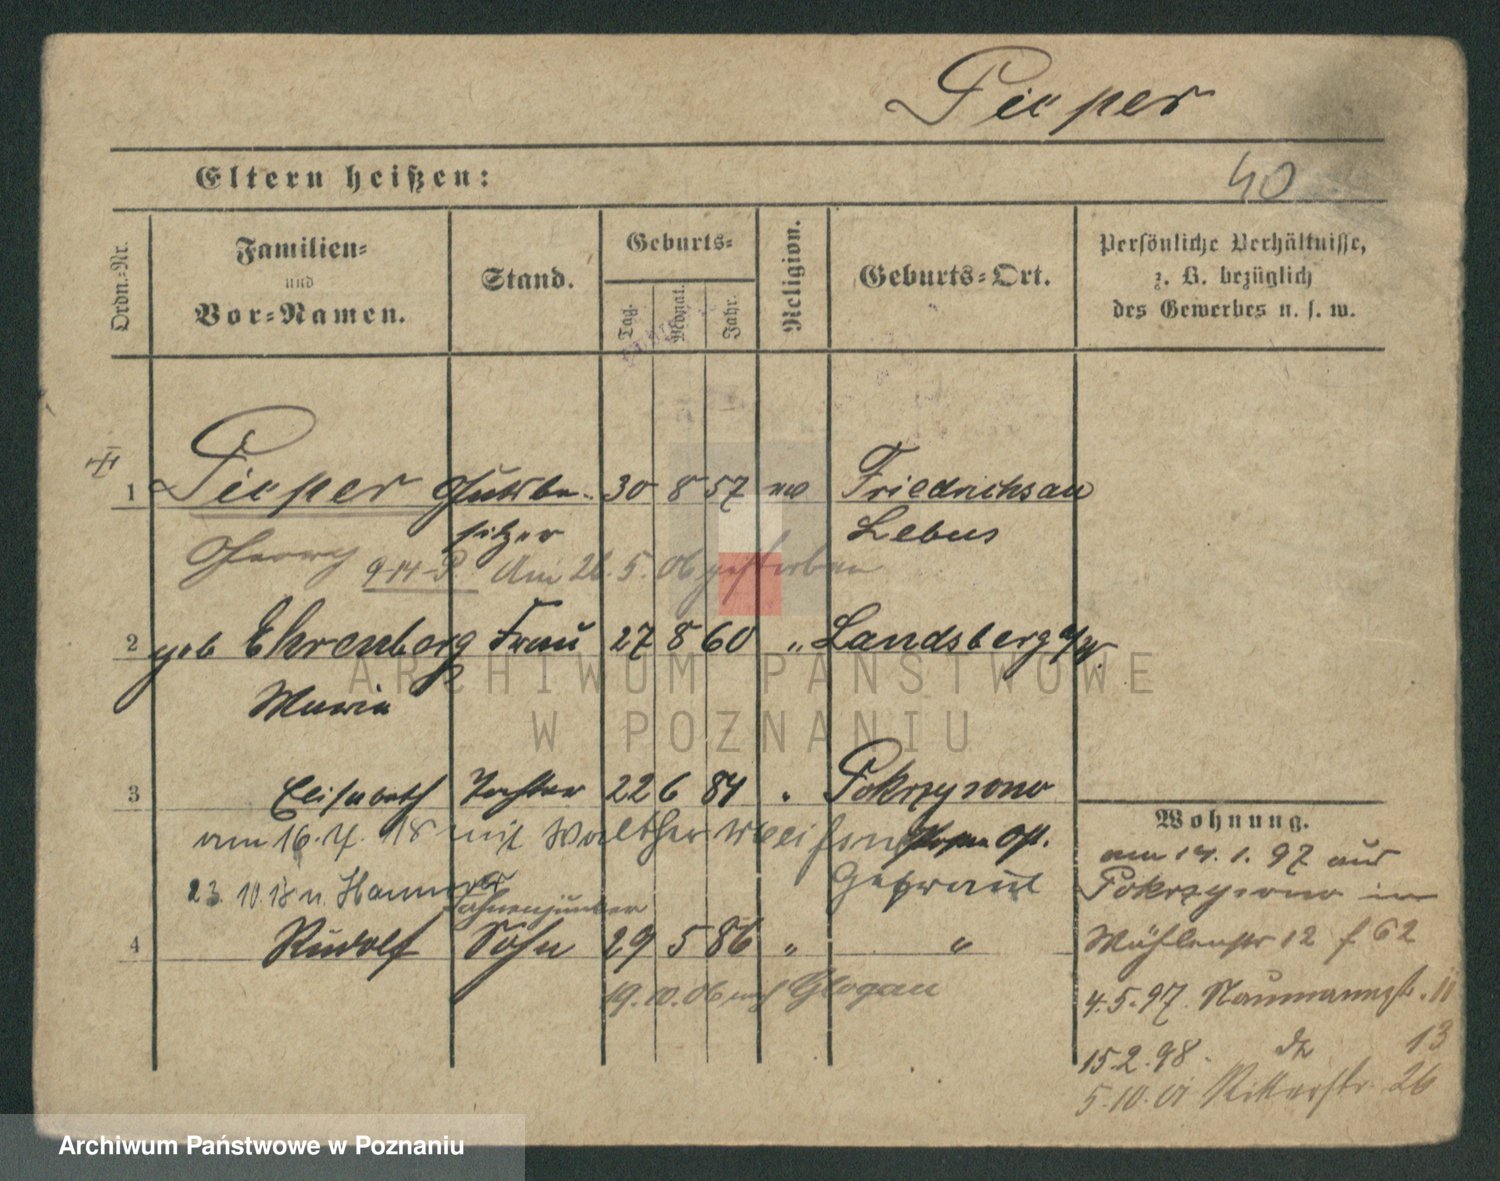 Pieper
40
Eltern heißen:
Ordn.-Nr.
Familien-
und
Vor-Namen.
Stand.
Geburts-
Tag.
Monat.
Jahr.
Religion.
Geburts-Ort.
Persönliche Verhältnisse,
z. B. bezüglich
des Gewerbes u. s. w.
1 Pieper Gutsbe- 30 8 57 ev Friedrichsau
sitzer Lebus
Georg 914 P. Am 26.5.06 gestorben
2 geb Ehrenberg Frau 27 8 60 " Landsberg a/W.
Marie
3 Elisabeth Tochter 22 6 84 " Pokrzywno
am 16.7.18 mit Walther
Getraut
23.10.18 n. Hannover
Fahnenjunker
4 Rudolf Sohn 29 5 86 " "
19.10.06 nach Glogau
Wohnung.
am 14.1.97 aus
Pokrzywno in
Mühlenstr 12 f 62
4.5.97. Naumannstr. 11
15.2.98. do 13
5.10.01 Ritterstr. 26
ARCHIWUM PAŃSTWOWE
W POZNANIU
Archiwum Państwowe w Poznaniu